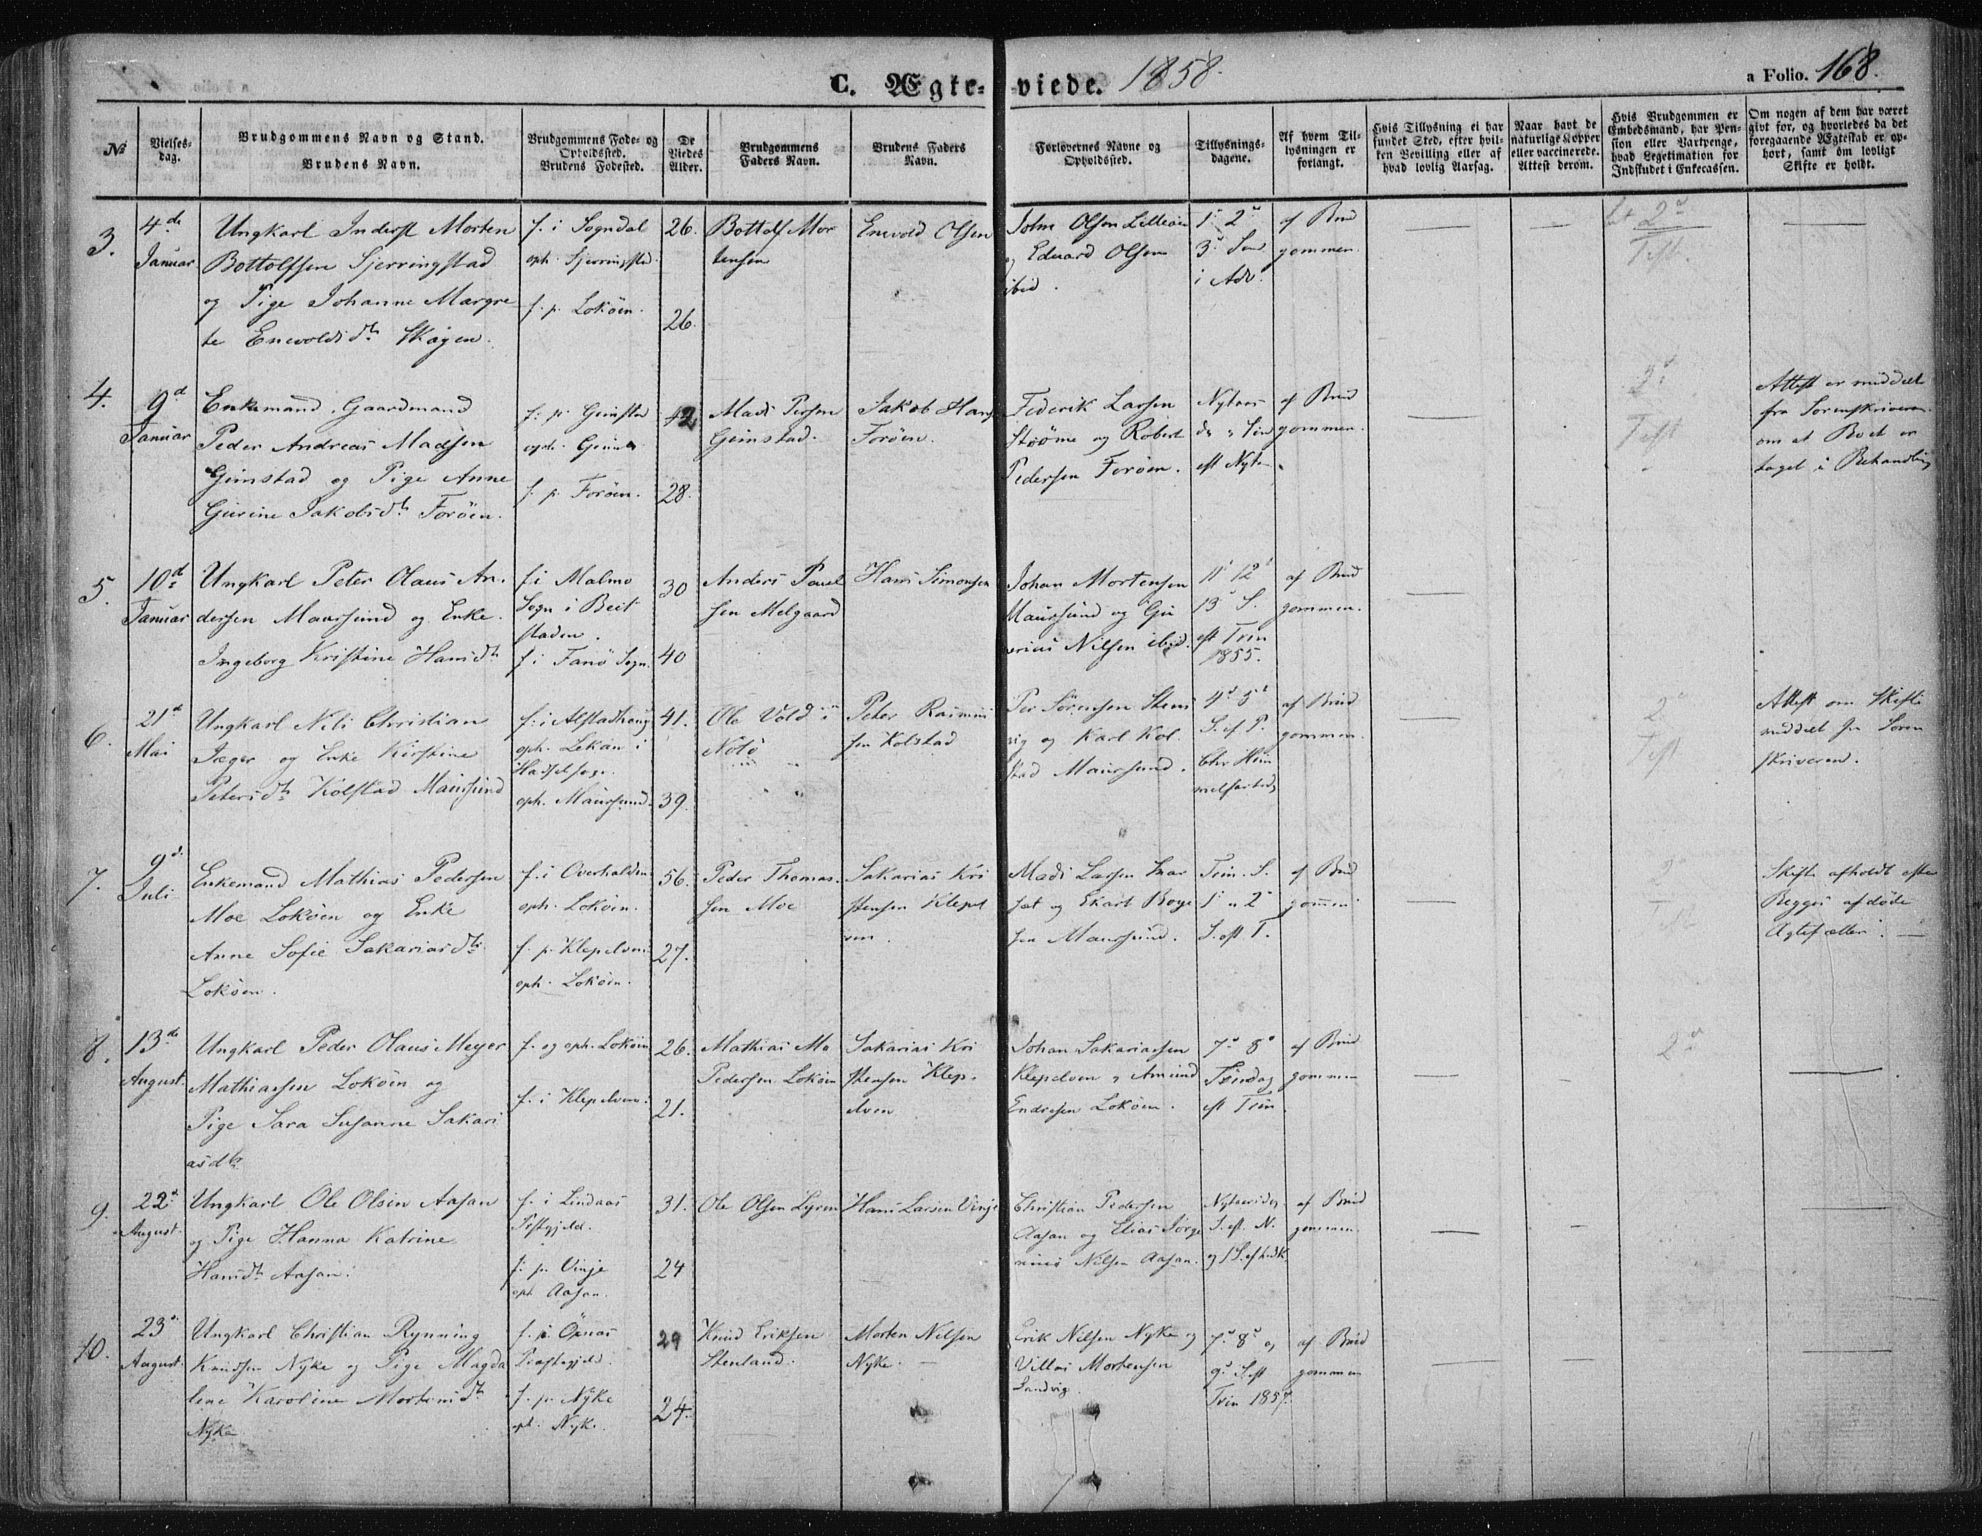 C. Ægteviede. 1858.
a Folio. 168.
№
Vielsesdag.
Brudgommens Navn og Stand.
Brudens Navn.
Brudgommens Føde- og
Opholdssted.
Brudens Fødested.
De
Viedes
Alder.
Brudgommens
Faders Navn.
Brudens Faders
Navn.
Forlovernes Navne og
Opholdssted.
Tillysnings-
dagene.
Af hvem Til-
lysningen er
forlangt.
Hvis Tillysning ei har
fundet Sted, efter hvil-
ken Bevilling eller af
hvad lovlig Aarsag.
Naar havt de
naturlige Kopper
eller vaccinerede.
Attest derom.
Hvis Brudgommen er
Embedsmand, har Pen-
sion eller Vartpenge,
hvad Legetimation for
Indskudet i Enkecassen.
Om nogen af dem har været
givt før, og hvorledes da det
foregaaende Ægteskab er op-
hørt, samt om lovligt
Skifte er holdt.
3.
4de
Januar
Ungkarl Inderst Morten
Bottolfsen Sjerringstad
og Pige Johanne Margre
te Enevoldsdtr Skagen.
f. i Sogndal
oph. Sjerringstad.
f. p. Loköen.
26.
26.
Bottolf Mor
tensen
Enevold Olsen
John Olsen Lilleöen
og Eduard Olsen
ibid.
1ste 2den
3die Søn
i Adv.
af Brud
gommen.
2
Test.
4.
9d
Januar
Enkemand, Gaardmand
Peder Andreas Madsen
Geimstad og Pige Anne
Gurine Jakobsdtr Foröen.
f. p. Geimstad
oph. Geims
f. p. Foröen.
42
28.
Mads Persen
Geimstad.
Jakob Hans
Foröen.
Federik Larsen
Ströme og Robert
Pedersen Foröen.
Nytaars
dg, Søn
eft Nyta.
af Brud
gommen.
2
Test
Attest er meddelt
fra Sorenskriveren
om at Boet er
taget i Behandling
5.
10d
Januar
Ungkarl Peter Olaus An.
dersen Maursund og Enke.
Ingeborg Kristine Hansdtr
f. i Malmo
Sogn i Beit
staden.
f. i Tanö Sogn.
30
40
Anders Paul
sen Melgaard
Hans Simonsen
Johan Mortensen
Maursund og Gu
erius Nilsen ibid.
11 12
13 S.
eft Trin
1855.
af Brud
gommen.
6.
21d
Mai
Ungkarl Nils Christian
Jæger og Enke Kirstine
Petersdtr Kolstad Maursund
f. i Alstadhoug
oph. Lekan i
Hadselsogn.
oph. Maursund.
41.
39.
Ole Vold i
Notö
Peter Rasmus
sen Kolstad
Per Sörensen Stens
vig og Karl Kol
stad Maursund.
4d 5
S. ef P.
Chr Him
melfartsdg
af Brud
gommen.
2
Test
Attest om Skifte
meddelt fra Soren
skriveren.
7.
9d
Juli
Enkemand Mathias Pedersen
Moe Loköen og Enke
Anne Sofie Sakariasdtr
Loköen.
f. i Overhalden
oph. Loköen.
f. p. Klepelven
oph. Loköen.
56.
27.
Peder Thomas.
sen Moe
Sakarias Kri
stensen Klepel
ven.
Mads Larsen
og Ekart Boye
sen Maursund.
Trin. S.
1 2
S. eft T.
af Brud
gommen.
2
Skifte afholdt efter
Begges afdöde
Ægtefæller.
8.
13de
August.
Ungkarl Peder Olaus Meyer
Mathiassen Loköen og
Pige Sara Susanne Sakari
asdtr
f. og oph. Loköen
f. i Klepelven.
26.
21.
Mathias Mo
Pedersen Loköen
Sakarias Kri
stensen Klep.
elven
Johan Sakariassen
Klepelven og Amund
Endresen Loköen.
7d 8d
Søndag
eft Trin.
af Brud
gommen
2d
9.
22d
August.
Ungkarl Ole Olsen Aasan
og Pige Hanna Katrine
Hansdtr Aasan.
f. i Lindaas
Pstgjeld.
f. p. Vinje
oph. Aasan.
31.
24
Ole Olsen Lyren
Hans Larsen Vinje
Christian Pedersen
Aasan og Elias Jörge
nius Nilsen Aasan.
Nytaarsdg
S. eft. N.
og 1 S. ef hedK.
af Brud
gommen.
10.
23d
August.
Ungkarl Christian Rynning
Knudsen Nyke og Pige Magda
lene Karoline Mortensdtr
Nyke
f. p. Öpnas
Præstegjeld.
f. p. Nyke
oph. Nyke.
29
24.
Knud Eriksen
Stenland.
Morten Nilsen
Nyke.
Erik Nilsen Nyke og
Villas Mortensen
Sandvig.
7d 8d og
9d S. eft
Trin 1857.
af Brud
gommen